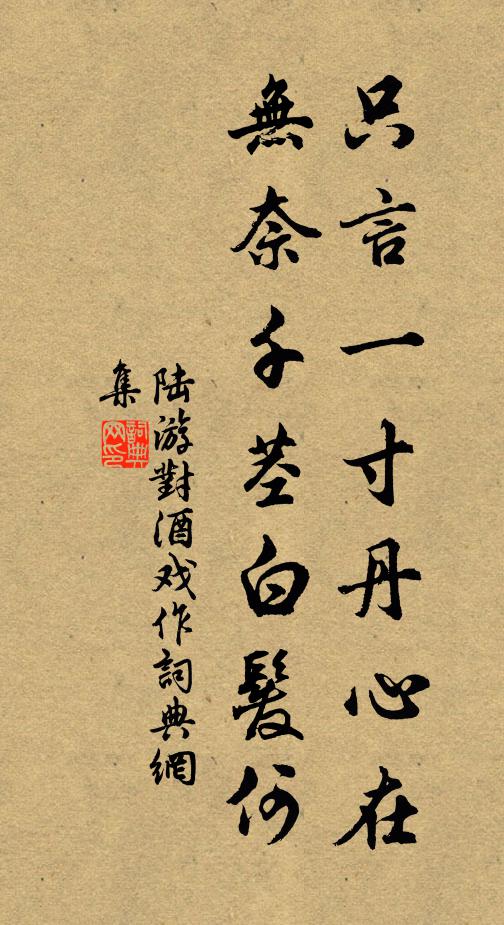 只言一寸丹心在
無奈千莖白髮何
陆游對酒戏作詞典網
集
詞典
网印